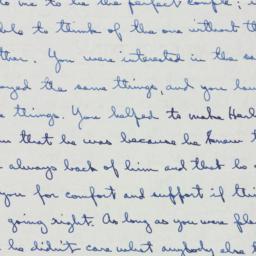 to me to be the perfect couple;
ble to think of the one without th
ther. You were interested in the sa
oyed the same things, and you lau
e things. You helped to make Harl
m that he was because he knew t
always back of him and that he
you for comfort and support if thi
going right. As long as you were plea
he didn't care what anybody else